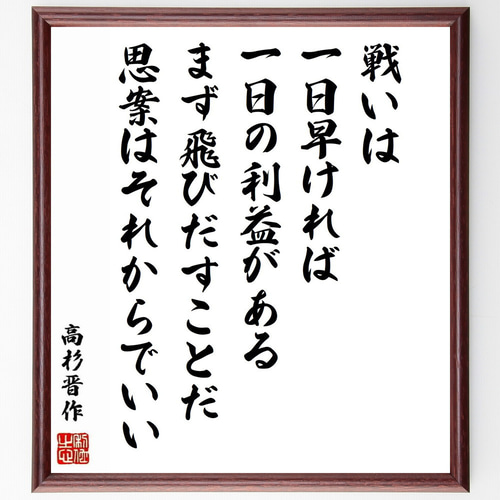 戦いは
一日早ければ
一日の利益がある
まず飛びだすことだ
思案はそれからでいい
高杉晋作